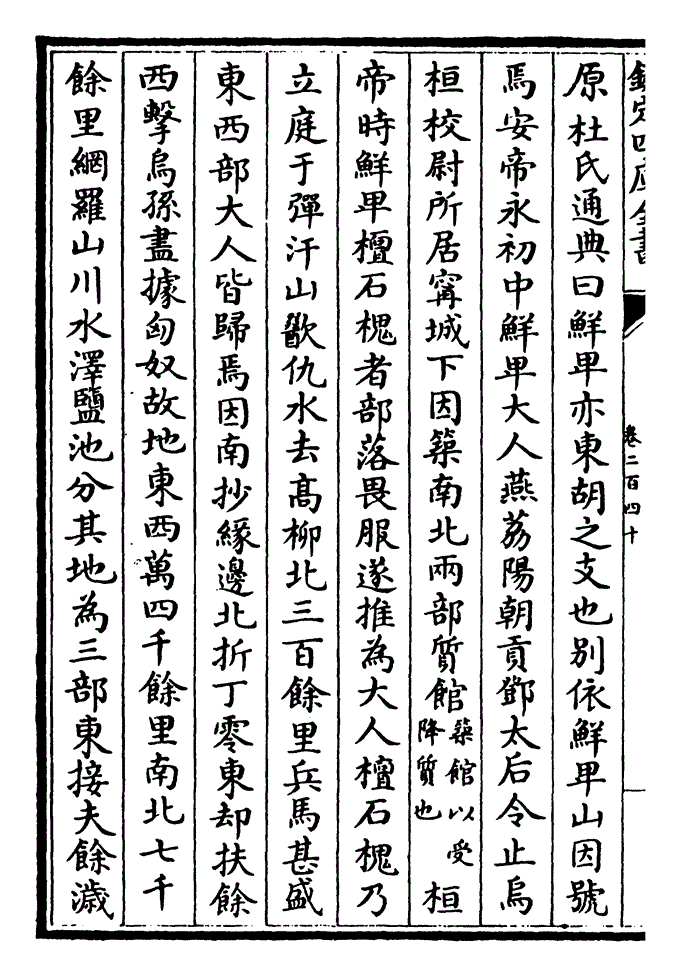 欽定四庫全書
卷二百四十
原杜氏通典曰鮮卑亦東胡之支也别依鮮卑山因號
焉安帝永初中鮮卑大人燕荔陽朝貢鄧太后令止烏
桓校尉所居甯城下因築南北兩部質館築館以受降質也桓
帝時鮮卑檀石槐者部落畏服遂推為大人檀石槐乃
立庭于彈汗山歠仇水去髙柳北三百餘里兵馬甚盛
東西部大人皆歸焉因南抄緣邊北折丁零東却扶餘
西擊烏孫盡據匈奴故地東西萬四千餘里南北七千
餘里網羅山川水澤鹽池分其地為三部東接夫餘濊